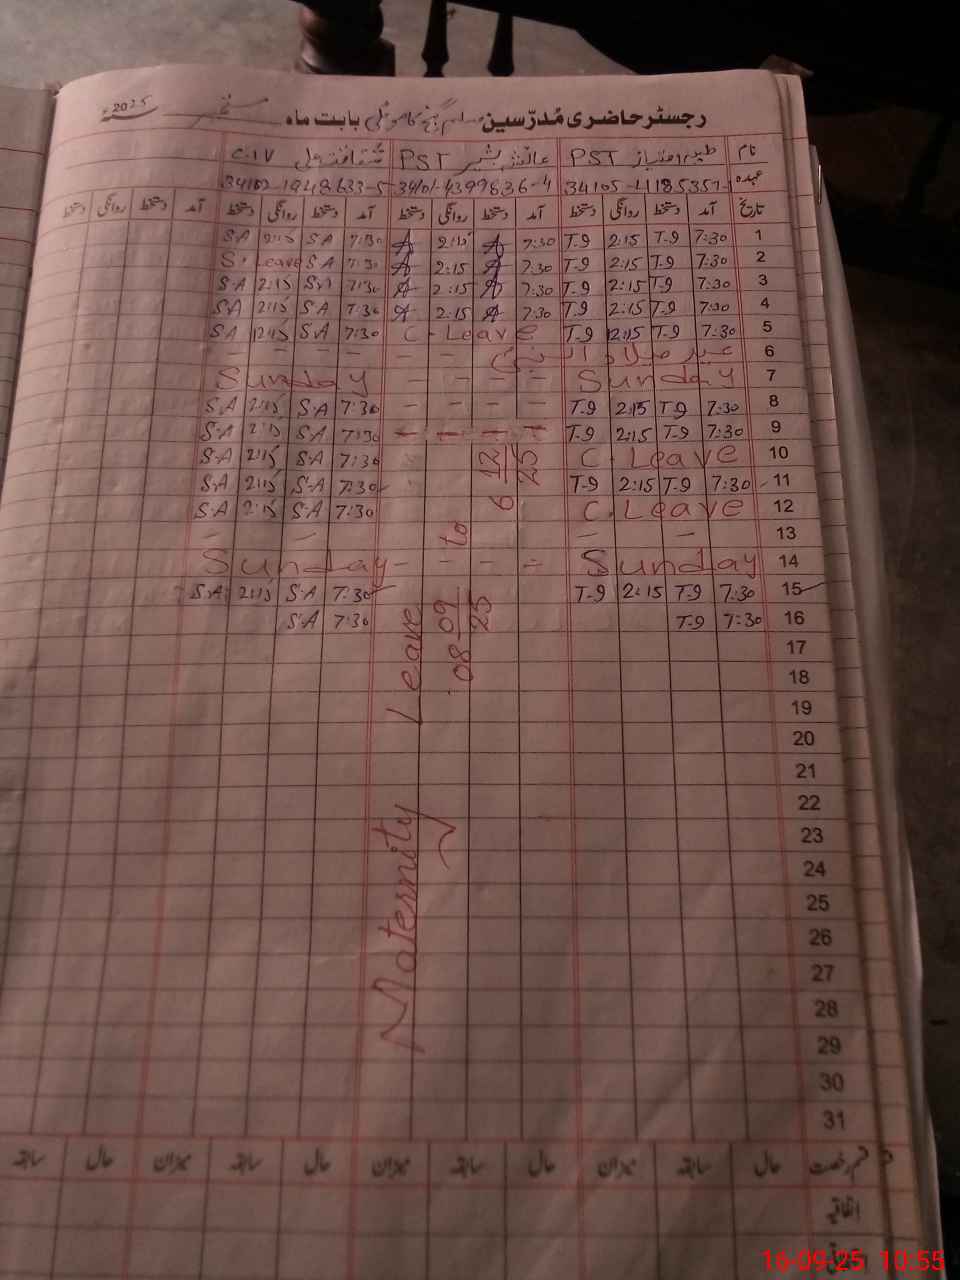 رجسٹر حاضری مُدرّسین مسلم گنج کاموئی بابت ماہ ستمبر سنہ 2025ء
نام طیبہ امتیاز PST عائشہ بشیر PST شگفتہ C.IV
عہدہ 34105-4185357- 34101-4399836-4 34102-1948633-5
تاریخ آمد دستخط روانگی دستخط آمد دستخط روانگی دستخط آمد دستخط روانگی دستخط آمد دستخط روانگی دستخط
1 7:30 T-9 2:15 T-9 7:30 A 2:15 A 7:30 S.A 2:15 S.A
2 7:30 T-9 2:15 T-9 7:30 A 2:15 A 7:30 S.A S. Leave
3 7:30 T-9 2:15 T-9 7:30 A 2:15 A 7:30 S.A 2:15 S.A
4 7:30 T-9 2:15 T-9 7:30 A 2:15 A 7:30 S.A 2:15 S.A
5 7:30 T-9 2:15 T-9 C-Leave 7:30 S.A 2:15 S.A
6 عید میلاد النبی - - - - - -
7 Sunday - - - - Sunday
8 7:30 T-9 2:15 T-9 - - - - 7:30 S.A 2:15 S.A
9 7:30 T-9 2:15 T-9 - - - - 7:30 S.A 2:15 S.A
10 C. Leave 7:30 S.A 2:15 S.A
11 7:30 T-9 2:15 T-9 7:30 S.A 2:15 S.A
12 C. Leave 7:30 S.A 2:15 S.A
13 - - - -
14 Sunday - - - - Sunday
15 7:30 T-9 2:15 T-9 7:30 S.A 2:15 S.A
16 7:30 T-9 7:30 S.A
Maternity Leave
08-09-25 to 6-12-25
17
18
19
20
21
22
23
24
25
26
27
28
29
30
31
قسم رخصت حال سابقہ میزان حال سابقہ میزان حال سابقہ میزان حال سابقہ
اتفاقیہ
16-09-25 10:55